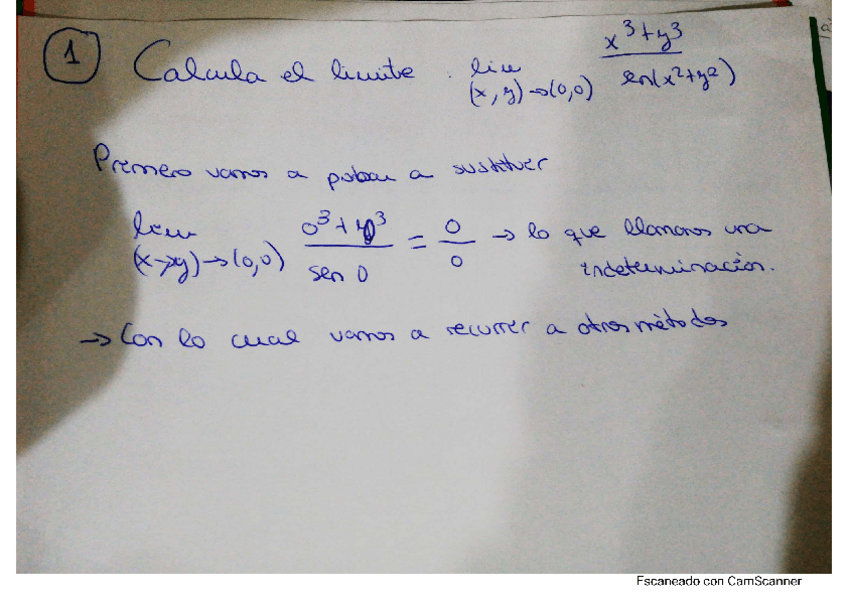 1 Calcula el limite: lim (x, y) → (0,0) x³+y³ / sen(x²+y²)
Primero vamos a probar a sustituir
lim (x→y) → (0,0) 0³+0³ / sen 0 = 0/0 → lo que llamamos una
indeterminación.
→ Con lo cual vamos a recurrir a otros métodos
Escaneado con CamScanner